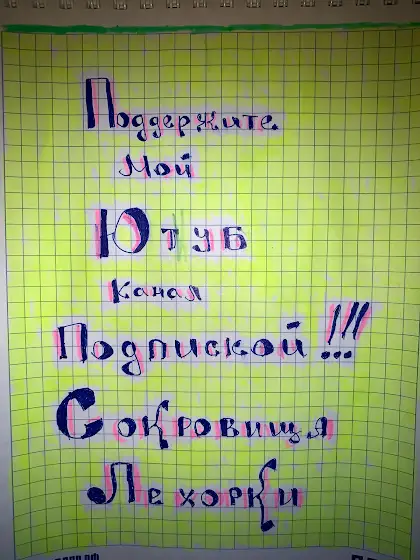 Поддержите
Мой
Ютуб
Канал
Подпиской!!!
Сокровища
Лехорки